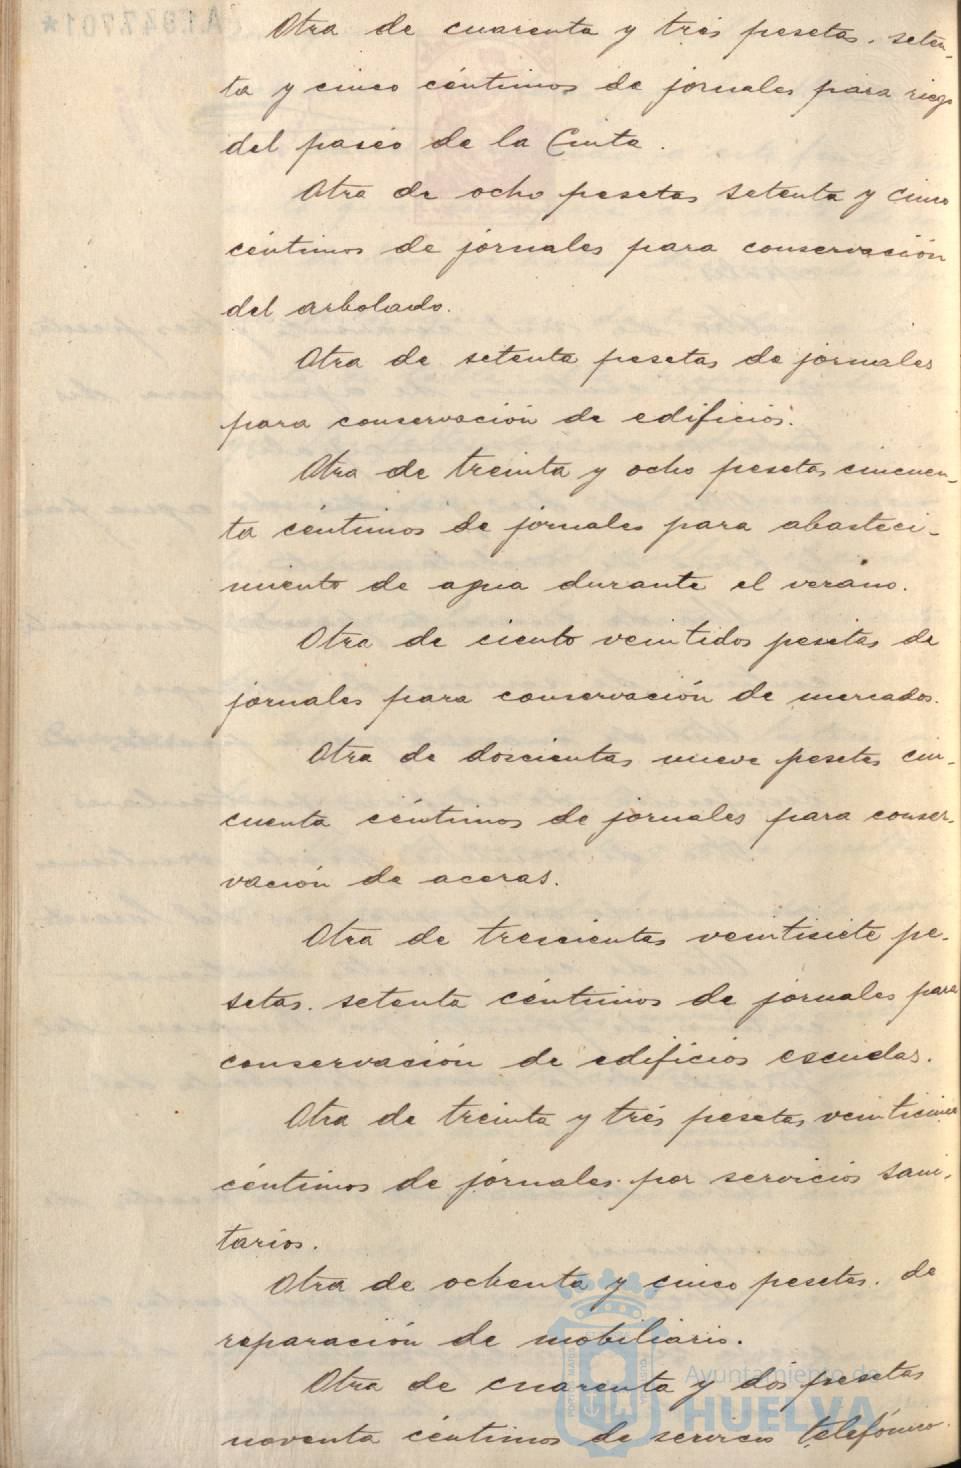 Otra de cuarenta y tres pesetas. seten-
ta y cinco céntimos de jornales para riego
del paseo de la Cinta.
Otra de ocho pesetas setenta y cinco
céntimos de jornales para conservación
del arbolado.
Otra de setenta pesetas de jornales
para conservación de edificios.
Otra de treinta y ocho pesetas cincuen-
ta céntimos de jornales para abasteci-
miento de agua durante el verano.
Otra de ciento veintidos pesetas de
jornales para conservación de mercados.
Otra de doscientas nueve pesetas cin-
cuenta céntimos de jornales para conser-
vación de aceras.
Otra de trescientas veintisiete pe-
setas. setenta céntimos de jornales para
conservación de edificios escuelas.
Otra de treinta y tres pesetas veinticinco
céntimos de jornales por servicios sani-
tarios.
Otra de ochenta y cinco pesetas. de
reparación de mobiliario.
Otra de cuarenta y dos pesetas
noventa céntimos de servicio telefónico.
Ayuntamiento de
HUELVA